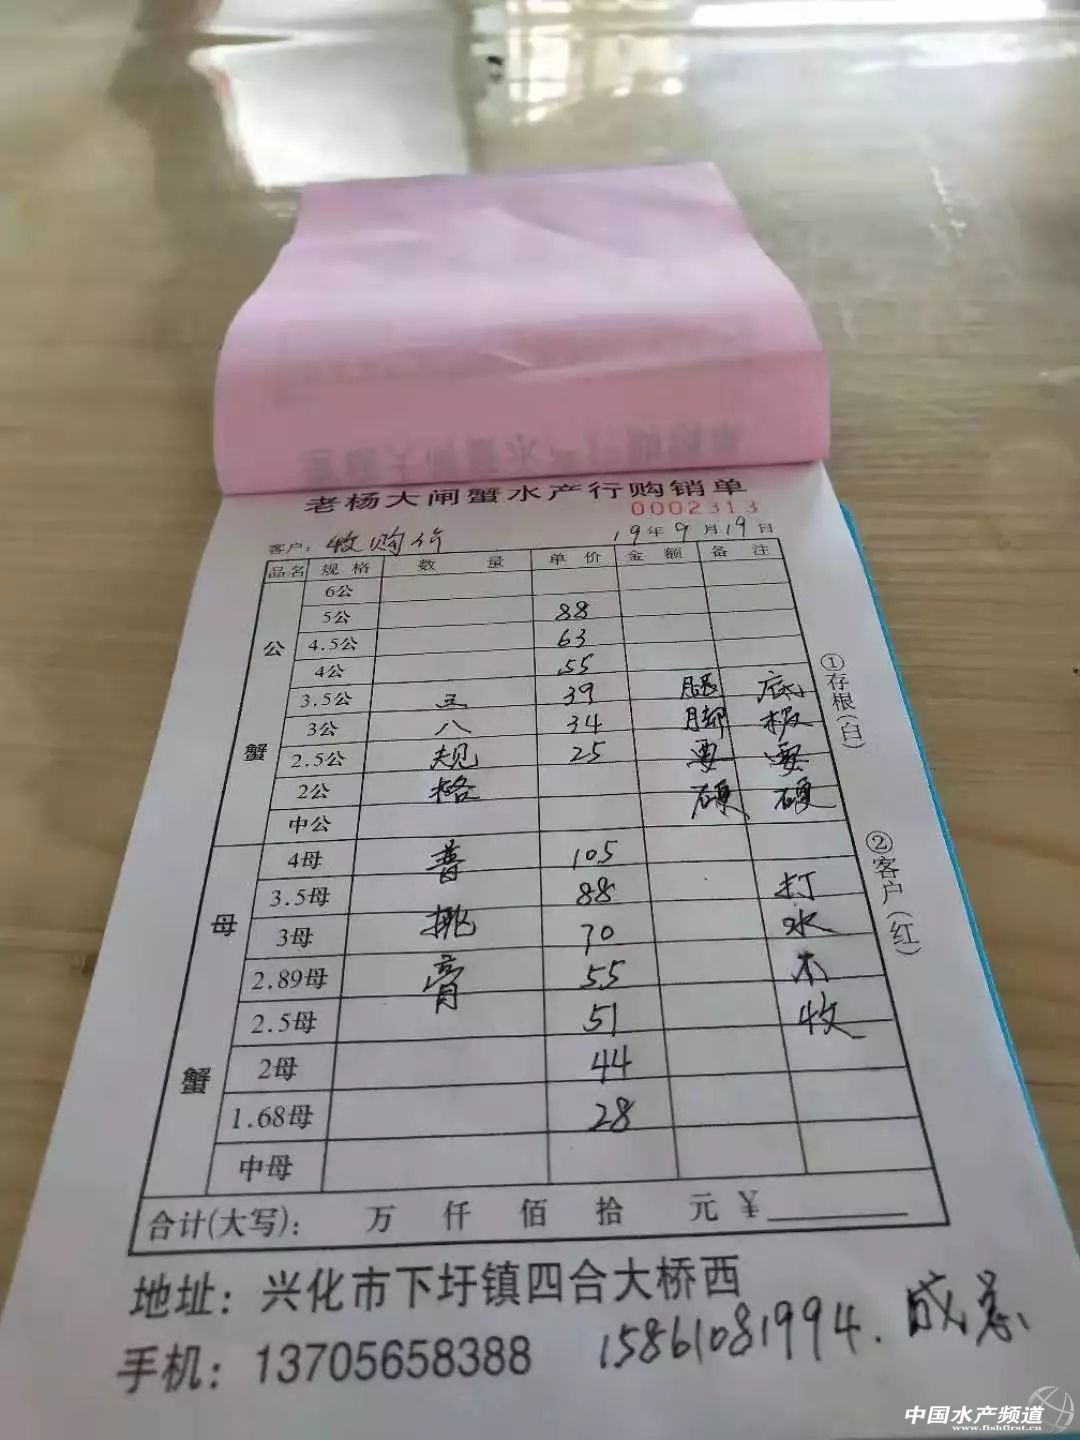 老杨大闸蟹水产行购销单
0002313
客户: 收购价 19年9月19日
品名 规格 数量 单价 金额 备注
公蟹
6公
5公 88
4.5公 63
4公 55
3.5公 五 39 腿 底
3公 八 34 脚 板
2.5公 规 25 要 要
2公 格 硬 硬
中公
母蟹
4母 普 105
3.5母 88 打
3母 挑 70 水
2.89母 膏 55 不
2.5母 51 收
2母 44
1.68母 28
中母
合计(大写): 万 仟 佰 拾 元 ¥
①存根(白)
②客户(红)
地址: 兴化市下圩镇四合大桥西
手机: 13705658388 15861081994.
中国水产频道
www.fishfirst.cn